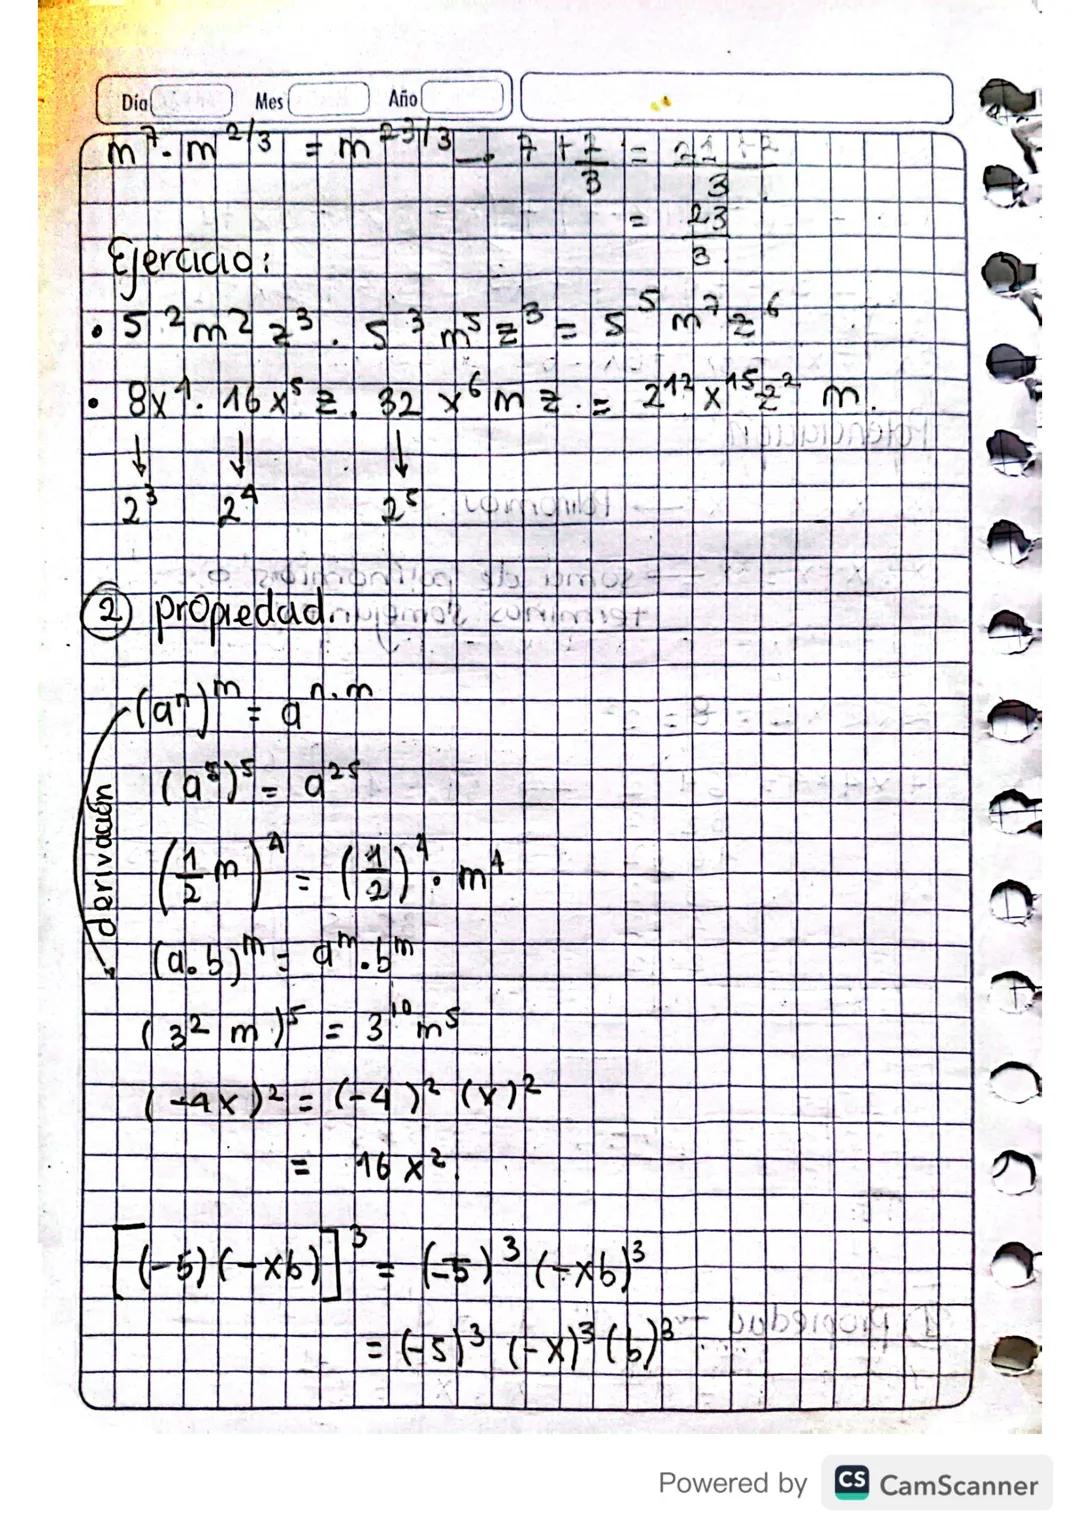 Día Mes Año
m^7 . m^{2/3} = m^{23/3} → 7 + 2/3 = 21+2/3
= 23/3.
Ejercicio:
• 5^2 m^2 z^3 . 5^3 m^5 z^3 = 5^5 m^7 z^6
• 8x^4 . 16x^5 z . 32 x^6 m z . = 2^12 x^15 z^2 m.
↓ ↓ ↓
2^3 2^4 2^5
② propiedad.
(a^n)^m = a^{n.m}
(a^5)^5 = a^25
derivación
(1/2 m)^4 = (1/2)^4 . m^4
(a.b)^m = a^m . b^m
(3^2 m)^5 = 3^10 m^5
(-4x)^2 = (-4)^2 (x)^2
= 16 x^2.
[(-5)(-xb)]^3 = (-5)^3 (-xb)^3
= (-5)^3 (-x)^3 (b)^3
Powered by CS CamScanner